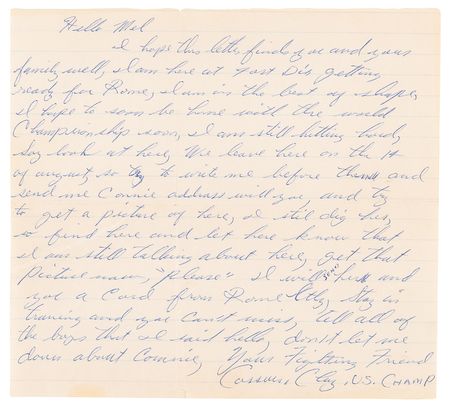 Hello Mel
I hope this letter finds you and your
family well, I am here at Fort Dis getting
ready for Rome, I am in the best of shape,
I hope to soon be home with the world
Championship soon, I am still hitting hard,
Say look at here, We leave here on the
of august, so try to write me before then and
send me Connie address will you, and try
to get a picture of here, I still dig her,
so find here and let here know that
I am still talking about here, get that
Picture now, "please" I will send her and
you a Card from Rome City, Stay in
traning and you cant miss, tell all of
the boys that I said hello, don't let me
down about Connie, Your Fighting Friend
Cassius Clay, U.S. CHAMP